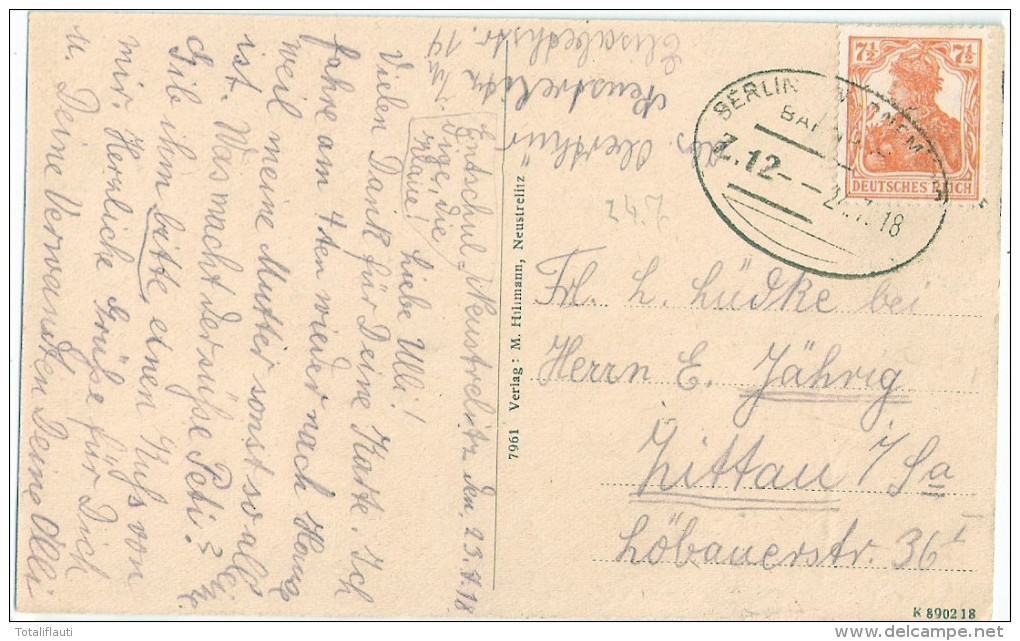 Neustrelitz, den, 23.7.18
Entschul-
dige, die
Liebe Ulli!
Vielen Dank für Deine Karte. Ich
fahre am 4ten wieder nach
weil meine Mutter sonst so allein
ist. Was macht der süße Peti?
Gib ihm bitte, einen Kuß von
mir. Herzliche Grüße für Dich
u. Deine Verwandten Deine Olli
Neustrelitz
Elisabethstr. 14
7961 Verlag: M. Hillmann, Neustrelitz
7½ 7½
DEUTSCHES REICH
BERLIN
Z.12
18
Frl. L. Lüdke bei
Herrn E. Jährig
Zittau i/Sa
Löbauerstr. 36 I
K 890218
Totaliflauti
delcampe.net